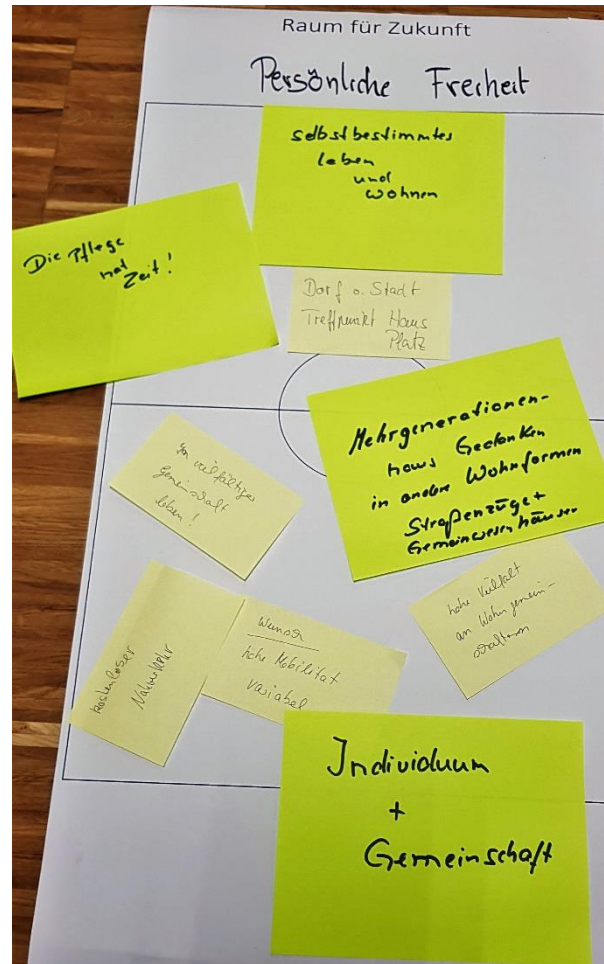 Raum für Zukunft
Persönliche Freiheit
selbstbestimmtes
leben
und
wohnen
Die Pflege
hat
Zeit!
Dorf o. Stadt
Treffpunkt Haus
Platz
Mehrgenerationen-
haus Gedanken
in andere Wohnformen
Straßenzüge +
Gemeinwesenhäuser
In vielfältiger
Gemeinschaft
leben!
hohe Vielfalt
an Wohngemein-
schaften
kostenloser
Nahverkehr
Wunsch
hohe Mobilität
variabel
Individuum
+
Gemeinschaft